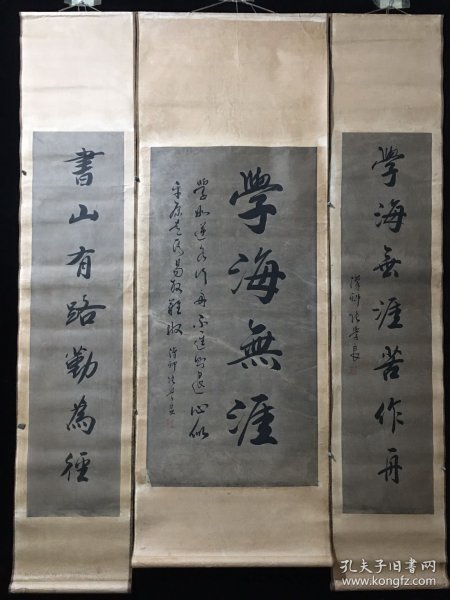 學海無涯苦作舟
漢卿張學良
學海無涯
學如逆水行舟不進則退心似
平原走馬易放難收 漢卿張學良
書山有路勤為徑
孔夫子旧书网
www.kongfz.com